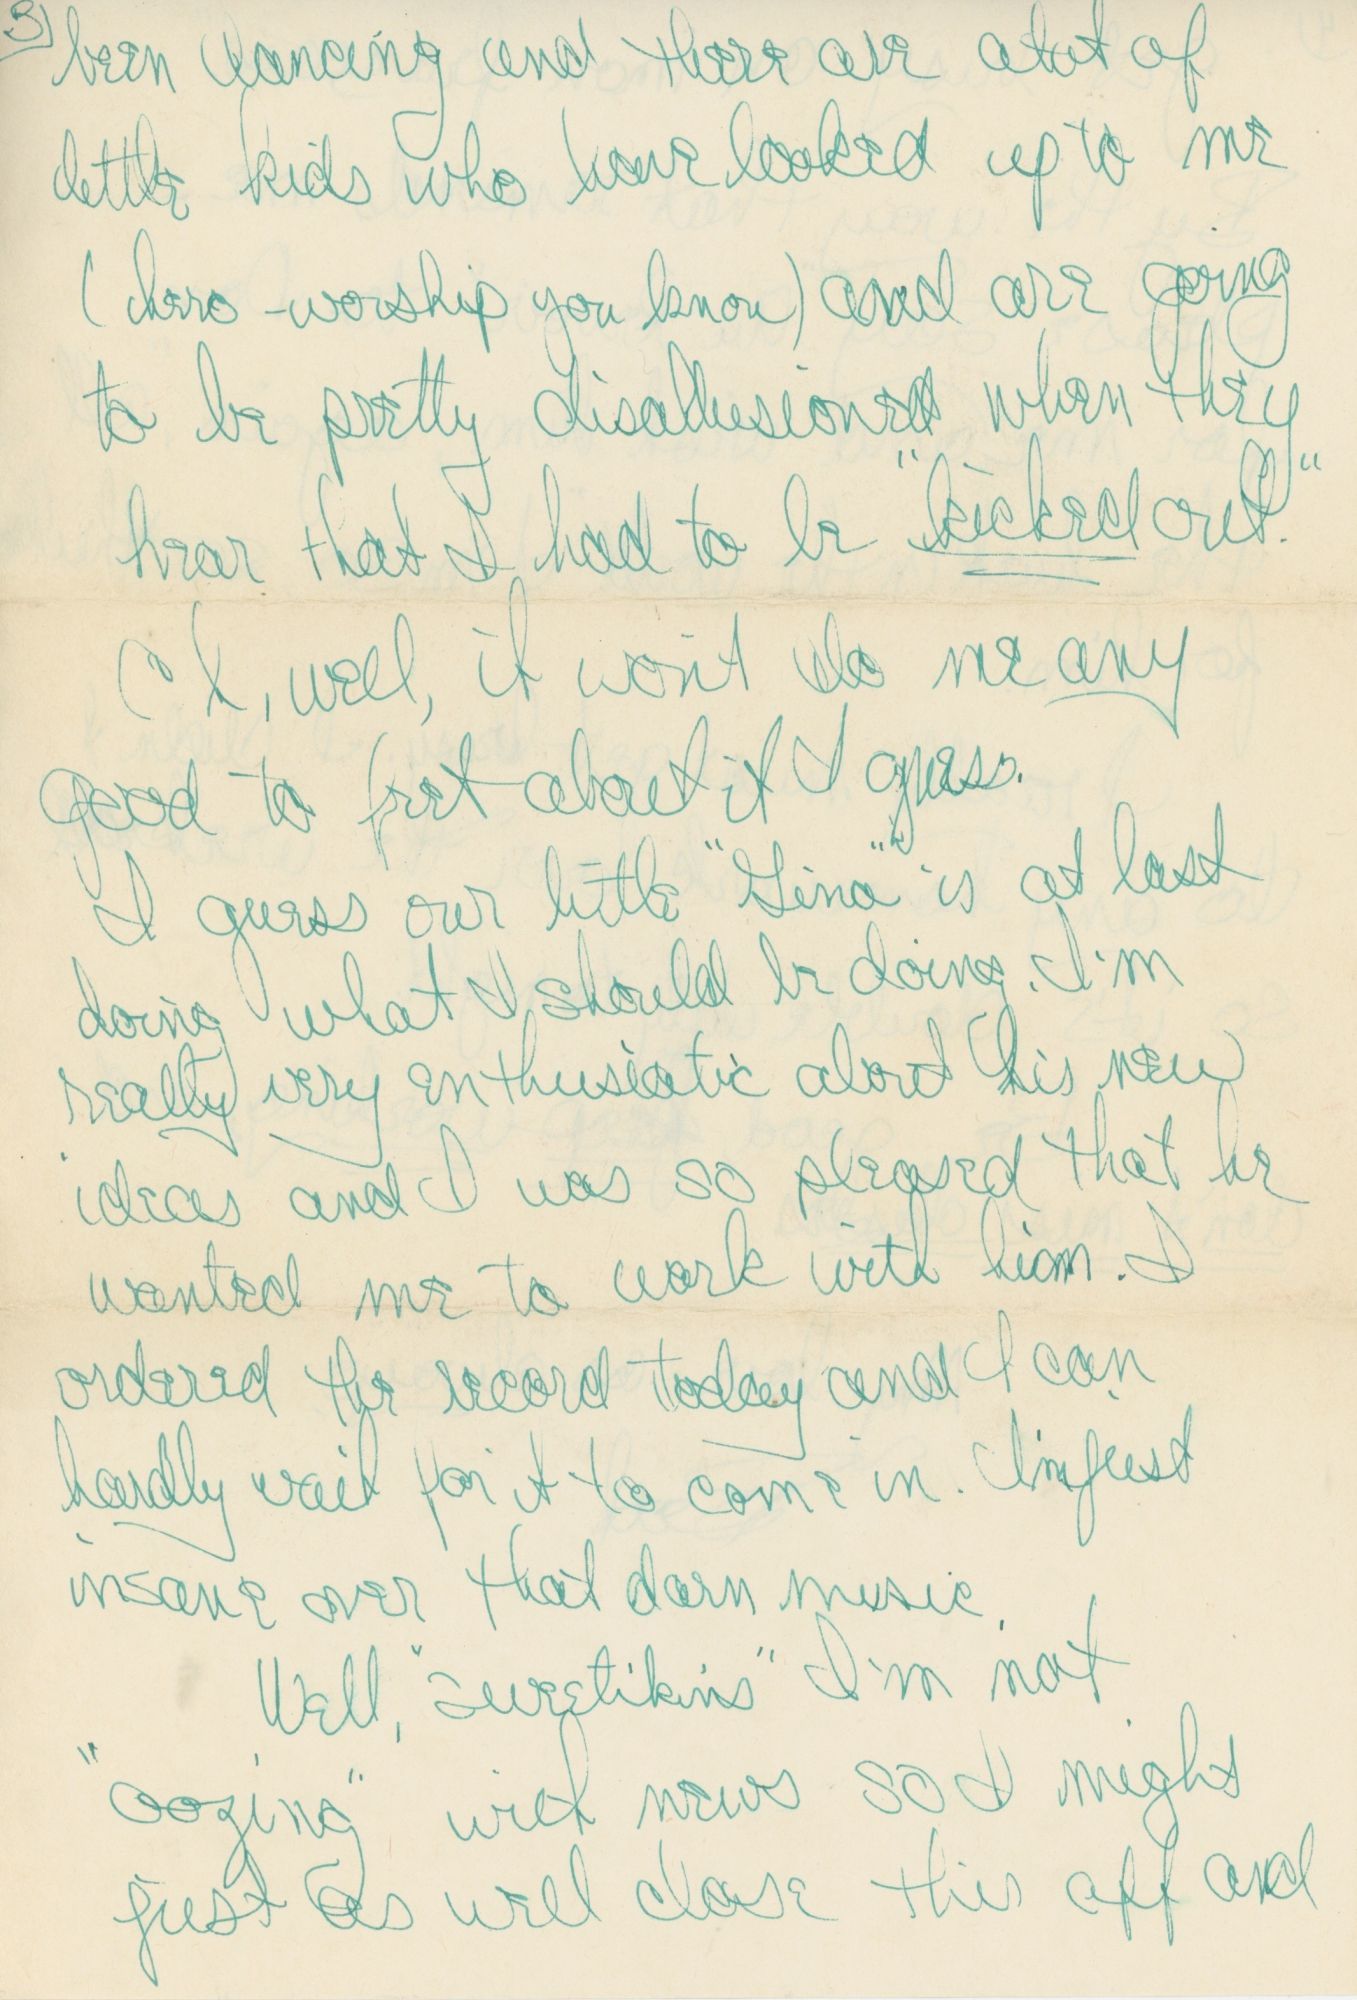 3)
been dancing and there are a lot of
little kids who have looked up to me
(hero-worship you know) and are going
to be pretty disallusioned when they
hear that I had to be "kicked out."
Oh, well, it won't do me any
good to fret about it I guess.
I guess our little "Gina" is at last
doing what I should be doing. I'm
really very enthusiatic about his new
ideas and I was so pleased that he
wanted me to work with him. I
ordered the record today and I can
hardly wait for it to come in. I'm just
insane over that darn music.
Well, "sweetikins" I'm not
"oozing" with news so I might
just as well close this off and